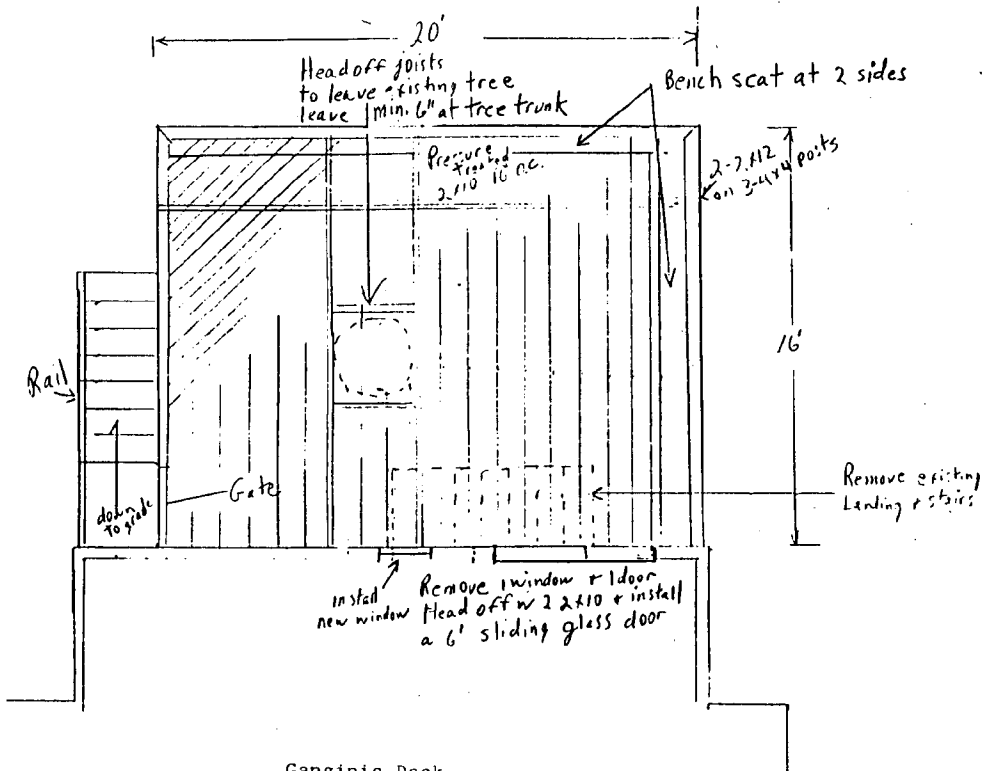 20'
Head off joists
to leave existing tree
leave min. 6" at tree trunk
Bench seat at 2 sides
Pressure
treated
2x10 16 o.c.
2-2x12
on 3-4x4 posts
16'
Rail
down
to grade
Gate
Remove existing
Landing + stairs
install
new window
Remove 1 window + 1 door
Head off w 2 2x10 + install
a 6' sliding glass door
Deck